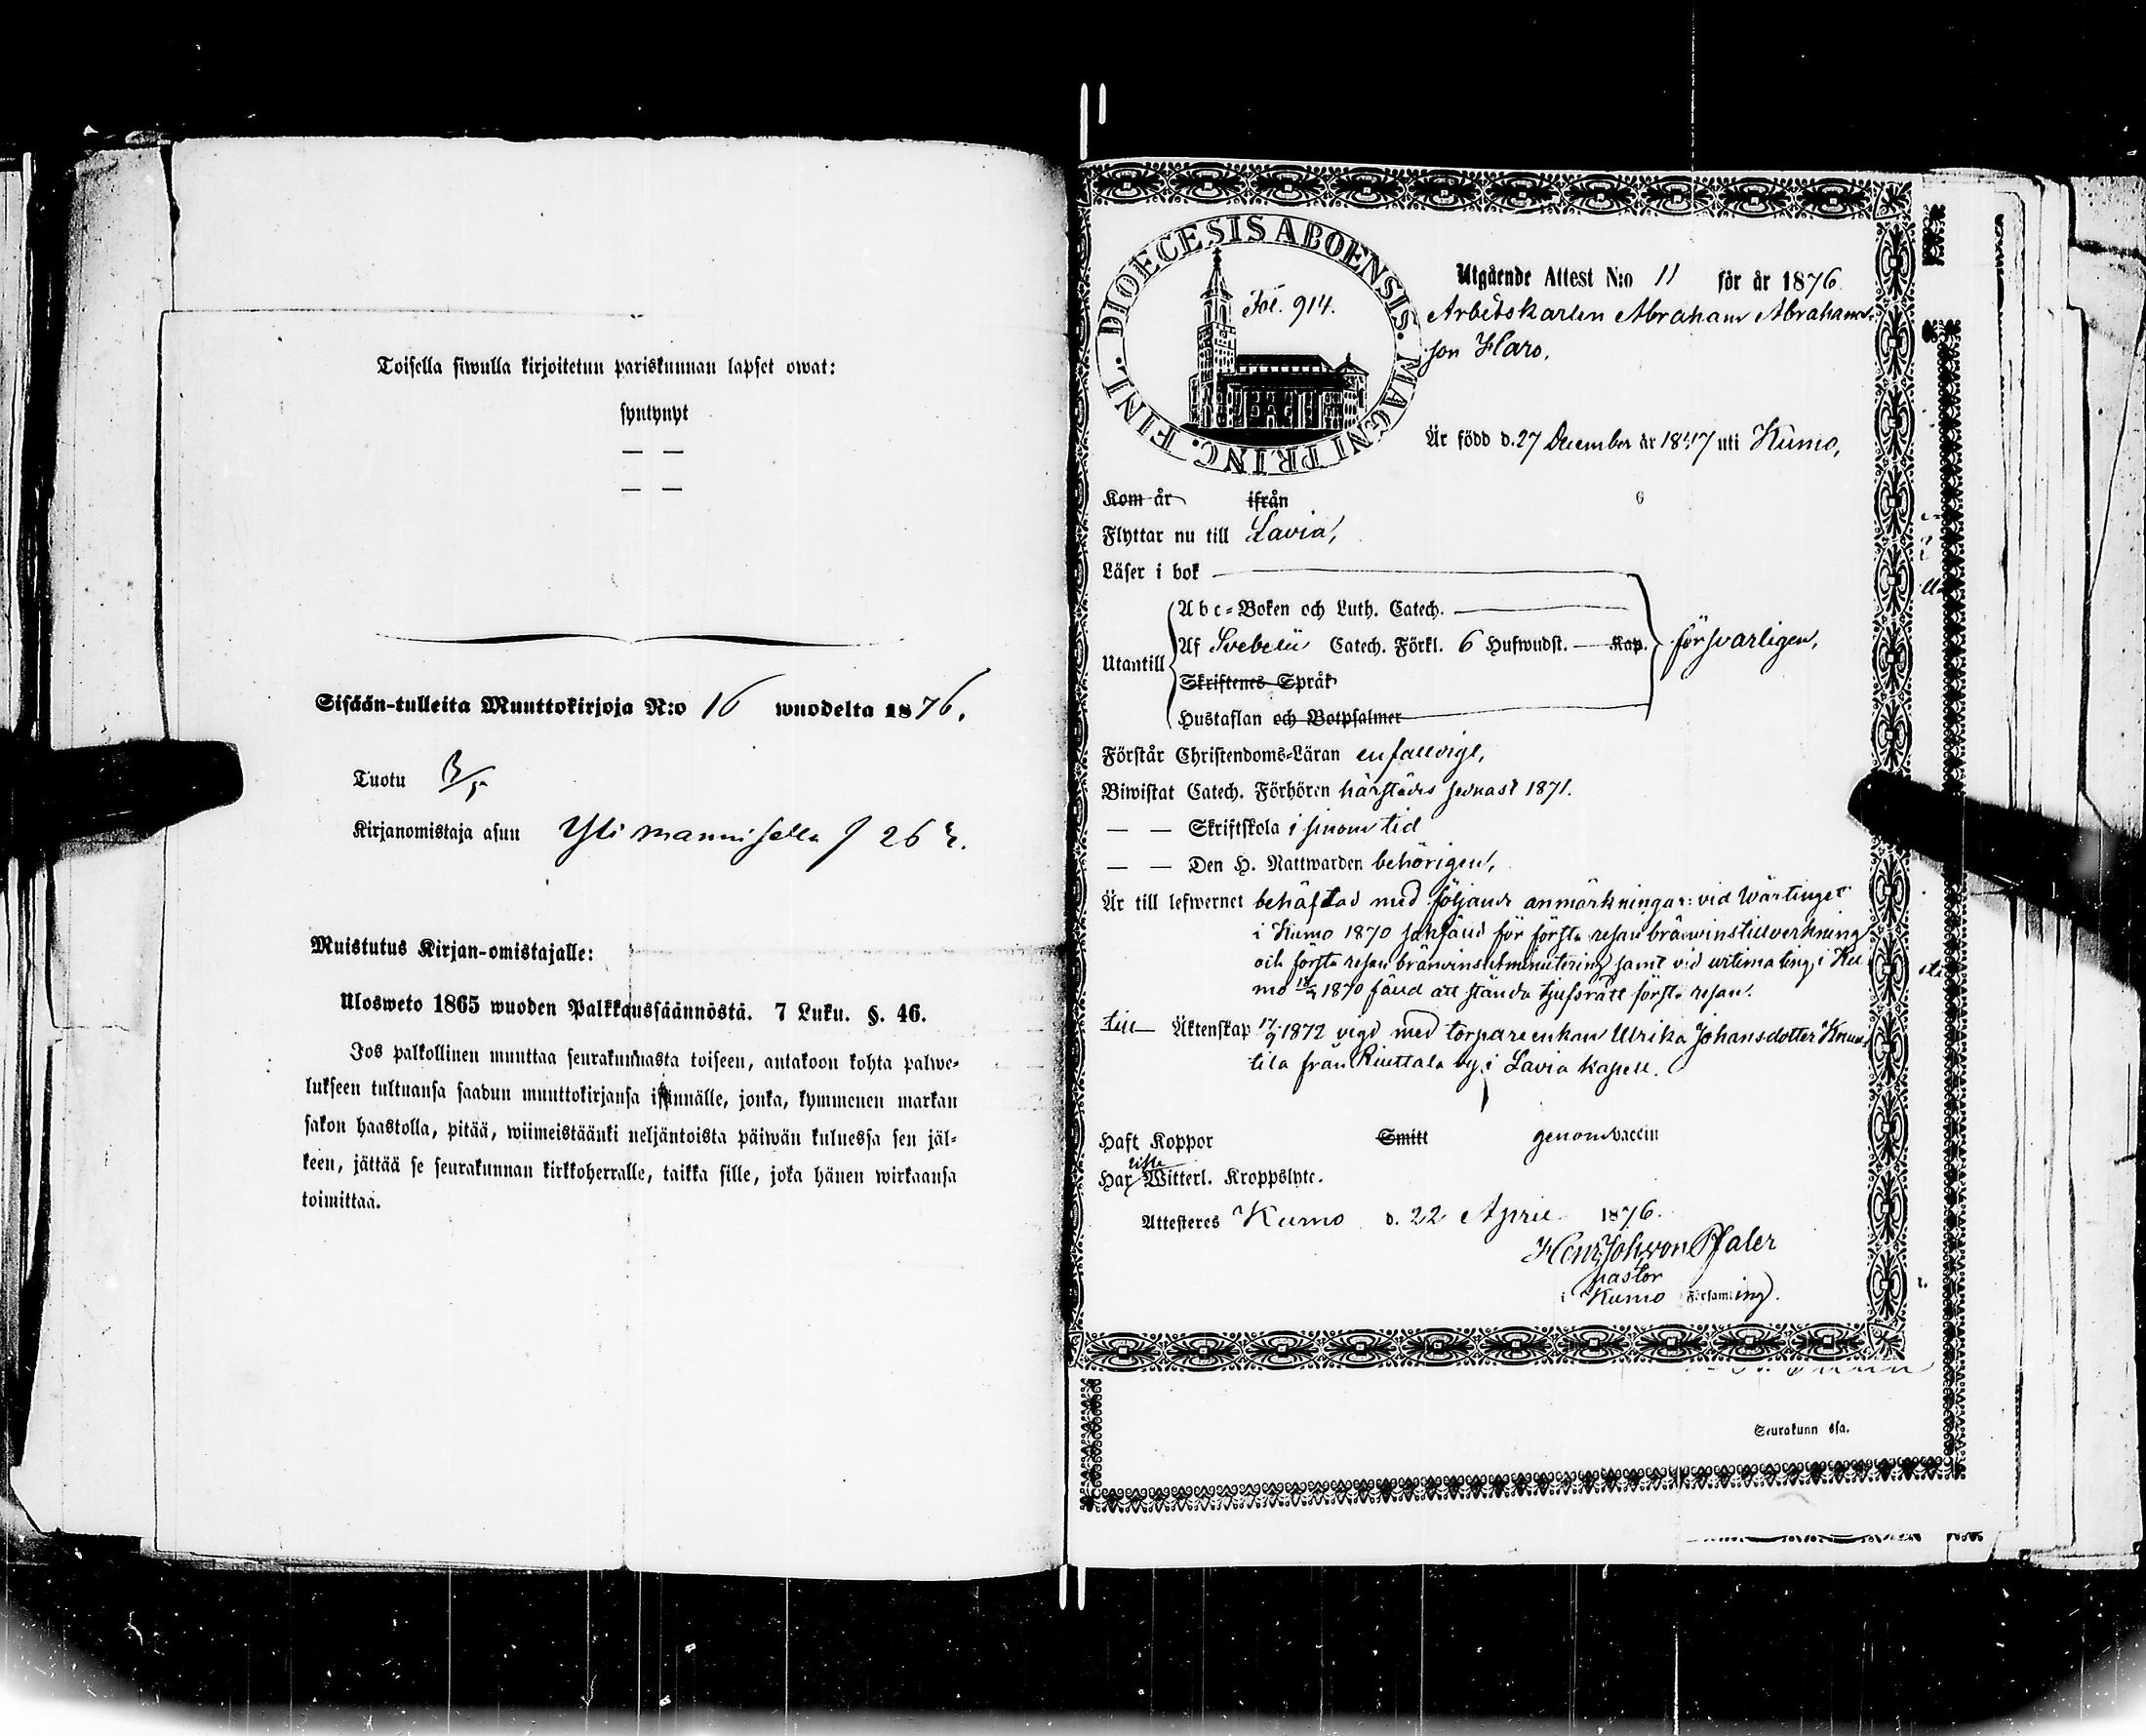 Toisella siwulla kirjoitetun pariskunnan lapset owat:
syntynyt
— —
— —
Sisään-tulleita Muuttokirjoja N:o 16 wuodelta 1876.
Tuotu
Kirjanomistaja asuu
Muistutus Kirjan-omistajalle:
Ulosweto 1865 wuoden Palkkaussäännöstä. 7 Luku. §. 46.
Jos palkollinen muuttaa seurakunnasta toiseen, antakoon kohta palwe-
lukseen tultuansa saadun muuttokirjansa isännälle, jonka, kymmenen markan
sakon haastolla, pitää, wiimeistäänki neljäntoista päiwän kuluessa sen jäl-
keen, jättää se seurakunnan kirkkoherralle, taikka sille, joka hänen wirkaansa
toimittaa.
DIOECESIS ABOENSIS. MAGNI PRINC. FINL.
Fol. 914.
Utgående Attest N:o 11 för år 1876
Arbetskarlen Abraham Abrahams-
son Haro,
Är född d. 27 December år 1847 uti Kumo,
Kom år ifrån
Flyttar nu till Lavia,
Läser i bok
Utantill
Abc-Boken och Luth. Catech.
Af Svebelii Catech. Förkl. 6 Hufwudst. — Kap.
Skriftenes Språk
Hustaflan och Botpsalmer
försvarligen,
Förstår Christendoms-Läran enfaldigt,
Biwistat Catech. Förhören härstädes sednast 1871.
— — Skriftskola i sinom tid
— — Den H. Nattwarden behörigen,
Är till lefwernet behäftad med följande anmärkningar: vid Wårtinget
i Kumo 1870 sakfäld för första resan bränvinstillverkning
och första resan bränvinsutminutering samt vid urtima ting i Ku-
mo 1870 fäld att stånda tjufsrätt första resan.
till Äktenskap 17/9 1872 vigd med torpareenkan Ulrika Johansdotter
tila från Riuttala by i Lavia kapell.
Haft Koppor Smitt genom vaccin
Har icke Witterl. Kroppslyte.
Attesteres Kumo d. 22 April 1876.
Henr. Joh. von Pfaler
pastor
i Kumo Församling.
Seurakunn ssa.